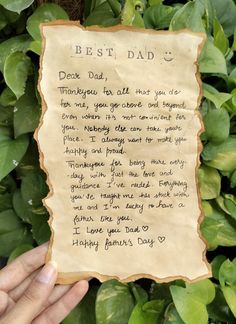 BEST DAD ☺
Dear Dad,
Thankyou for all that you do
for me, you go above and beyond
even when it's not convinient for
you. Nobody else can take your's
place. I always want to make you
happy and proud.
Thankyou for being there every-
day with just the love and
guidance I've needed. Everything
you've taught me has stuck with
me and I'm lucky to have a
father like you.
I Love you Dad ♡
Happy father's Day ♡